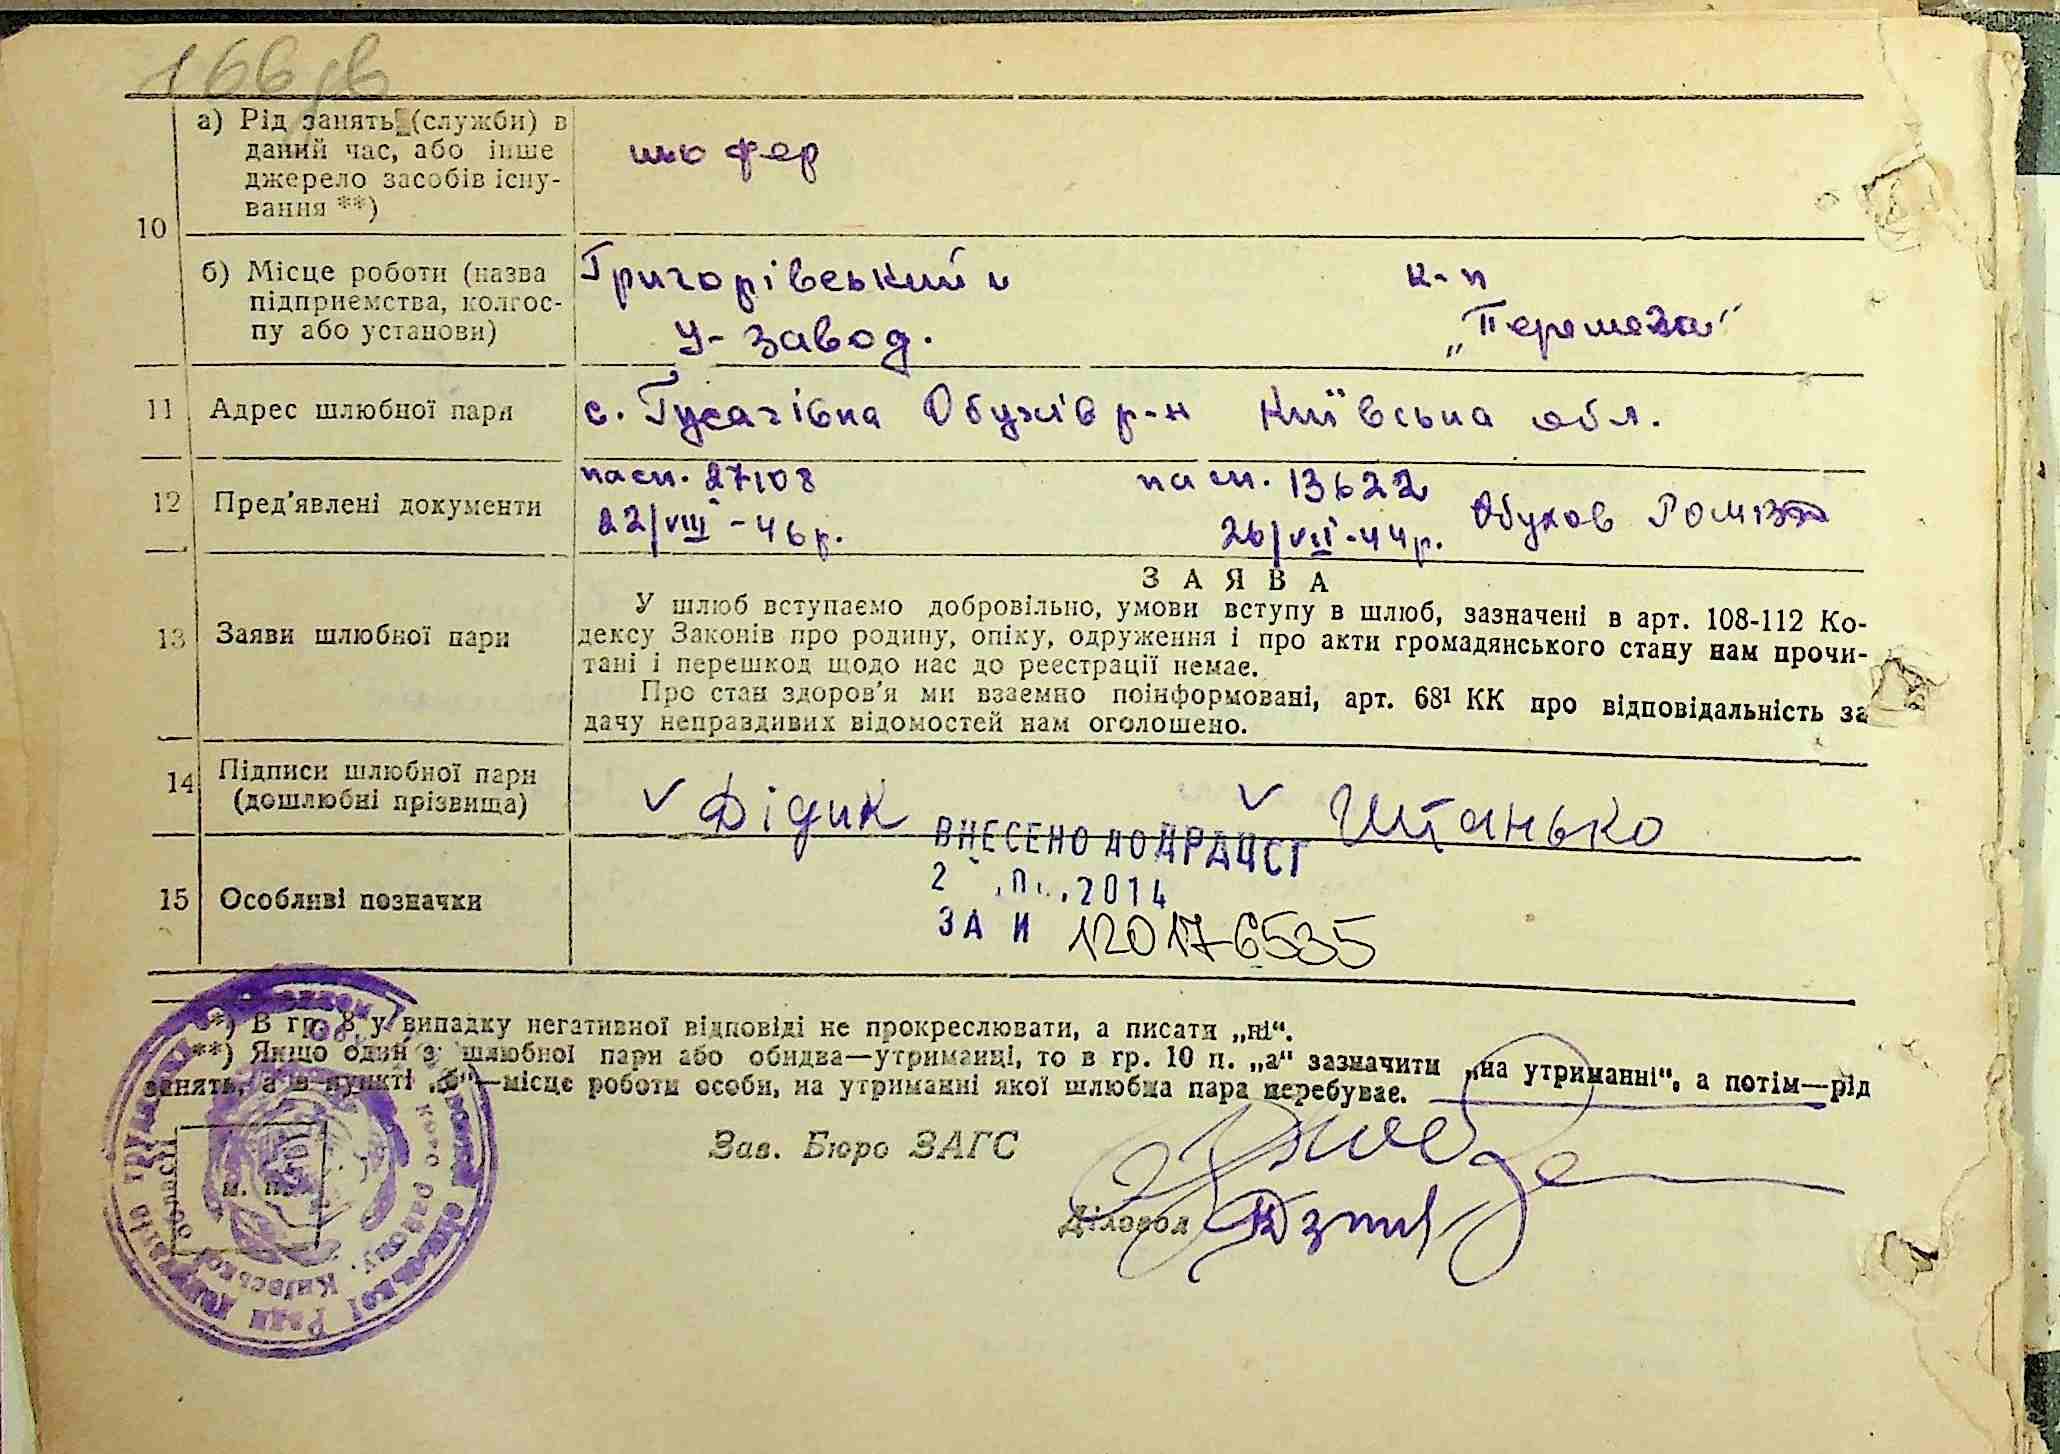 166 зв
10
а) Рід занять (служби) в
даний час, або інше
джерело засобів існу-
вання **)
шофер
б) Місце роботи (назва
підприємства, колгос-
пу або установи)
Григорівський
У-завод.
к-п
„Перемога"
11 Адрес шлюбної пари
с. Гусачівка Обухів р-н Київська обл.
12 Пред'явлені документи
пасп. 27108
22/VIII - 46 р.
пасп. 13622
26/VII - 44 р.
Обухов
13 Заяви шлюбної пари
ЗАЯВА
У шлюб вступаємо добровільно, умови вступу в шлюб, зазначені в арт. 108-112 Ко-
дексу Законів про родину, опіку, одруження і про акти громадянського стану нам прочи-
тані і перешкод щодо нас до реєстрації немає.
Про стан здоров'я ми взаємно поінформовані, арт. 68¹ КК про відповідальність за
дачу неправдивих відомостей нам оголошено.
14 Підписи шлюбної пари
(дошлюбні прізвища)
Дідик
Штанько
15 Особливі позначки
ВНЕСЕНО ДО ДРАЦСГ
2014
ЗА И 120176535
*) В гр. 8 у випадку негативної відповіді не прокреслювати, а писати „ні".
**) Якщо один з шлюбної пари або обидва—утриманці, то в гр. 10 п. „а" зазначити „на утриманні", а потім—рід
занять, а в пункті „б"—місце роботи особи, на утриманні якої шлюбна пара перебуває.
Зав. Бюро ЗАГС
Діловод
м. п.